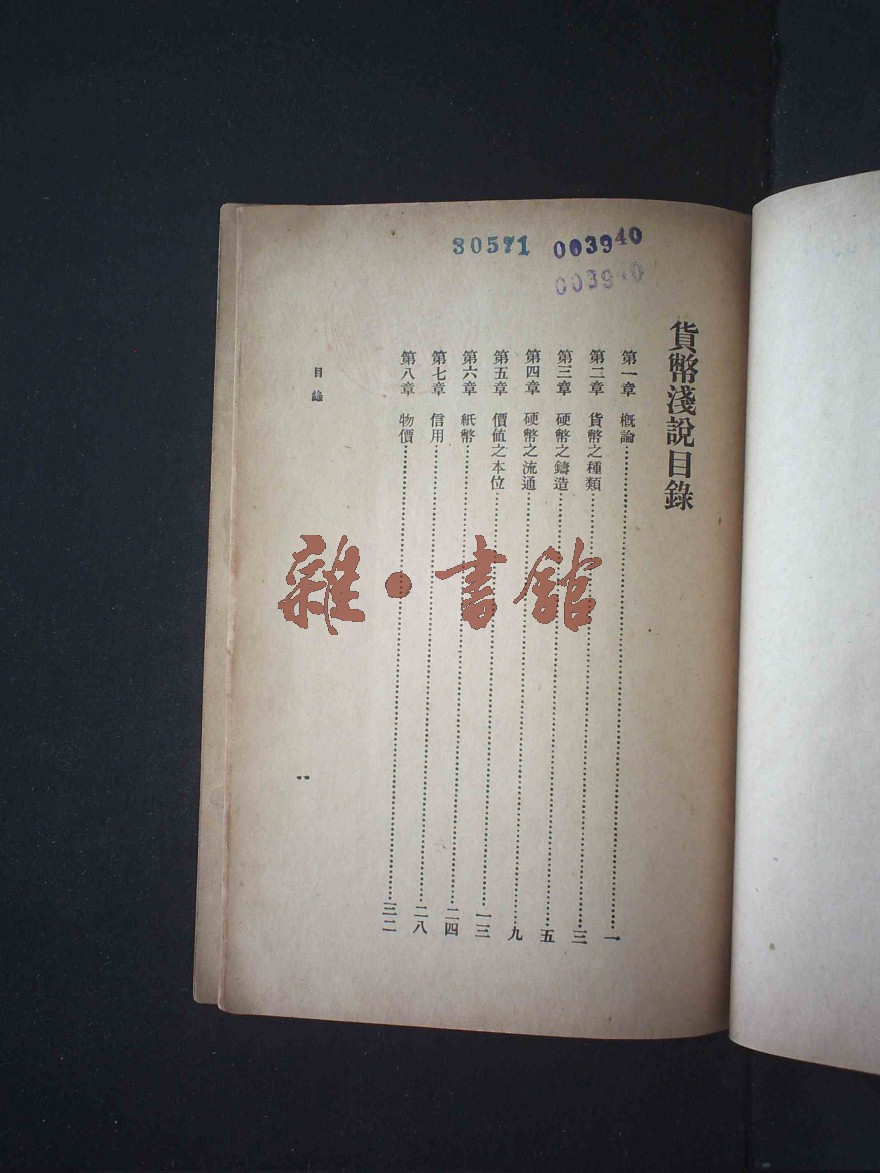 30571
003940
003940
貨幣淺說目錄
第一章 概論……一
第二章 貨幣之種類……三
第三章 硬幣之鑄造……五
第四章 硬幣之流通……九
第五章 價值之本位……一三
第六章 紙幣……二四
第七章 信用……二八
第八章 物價……三二
目錄
雜·書館